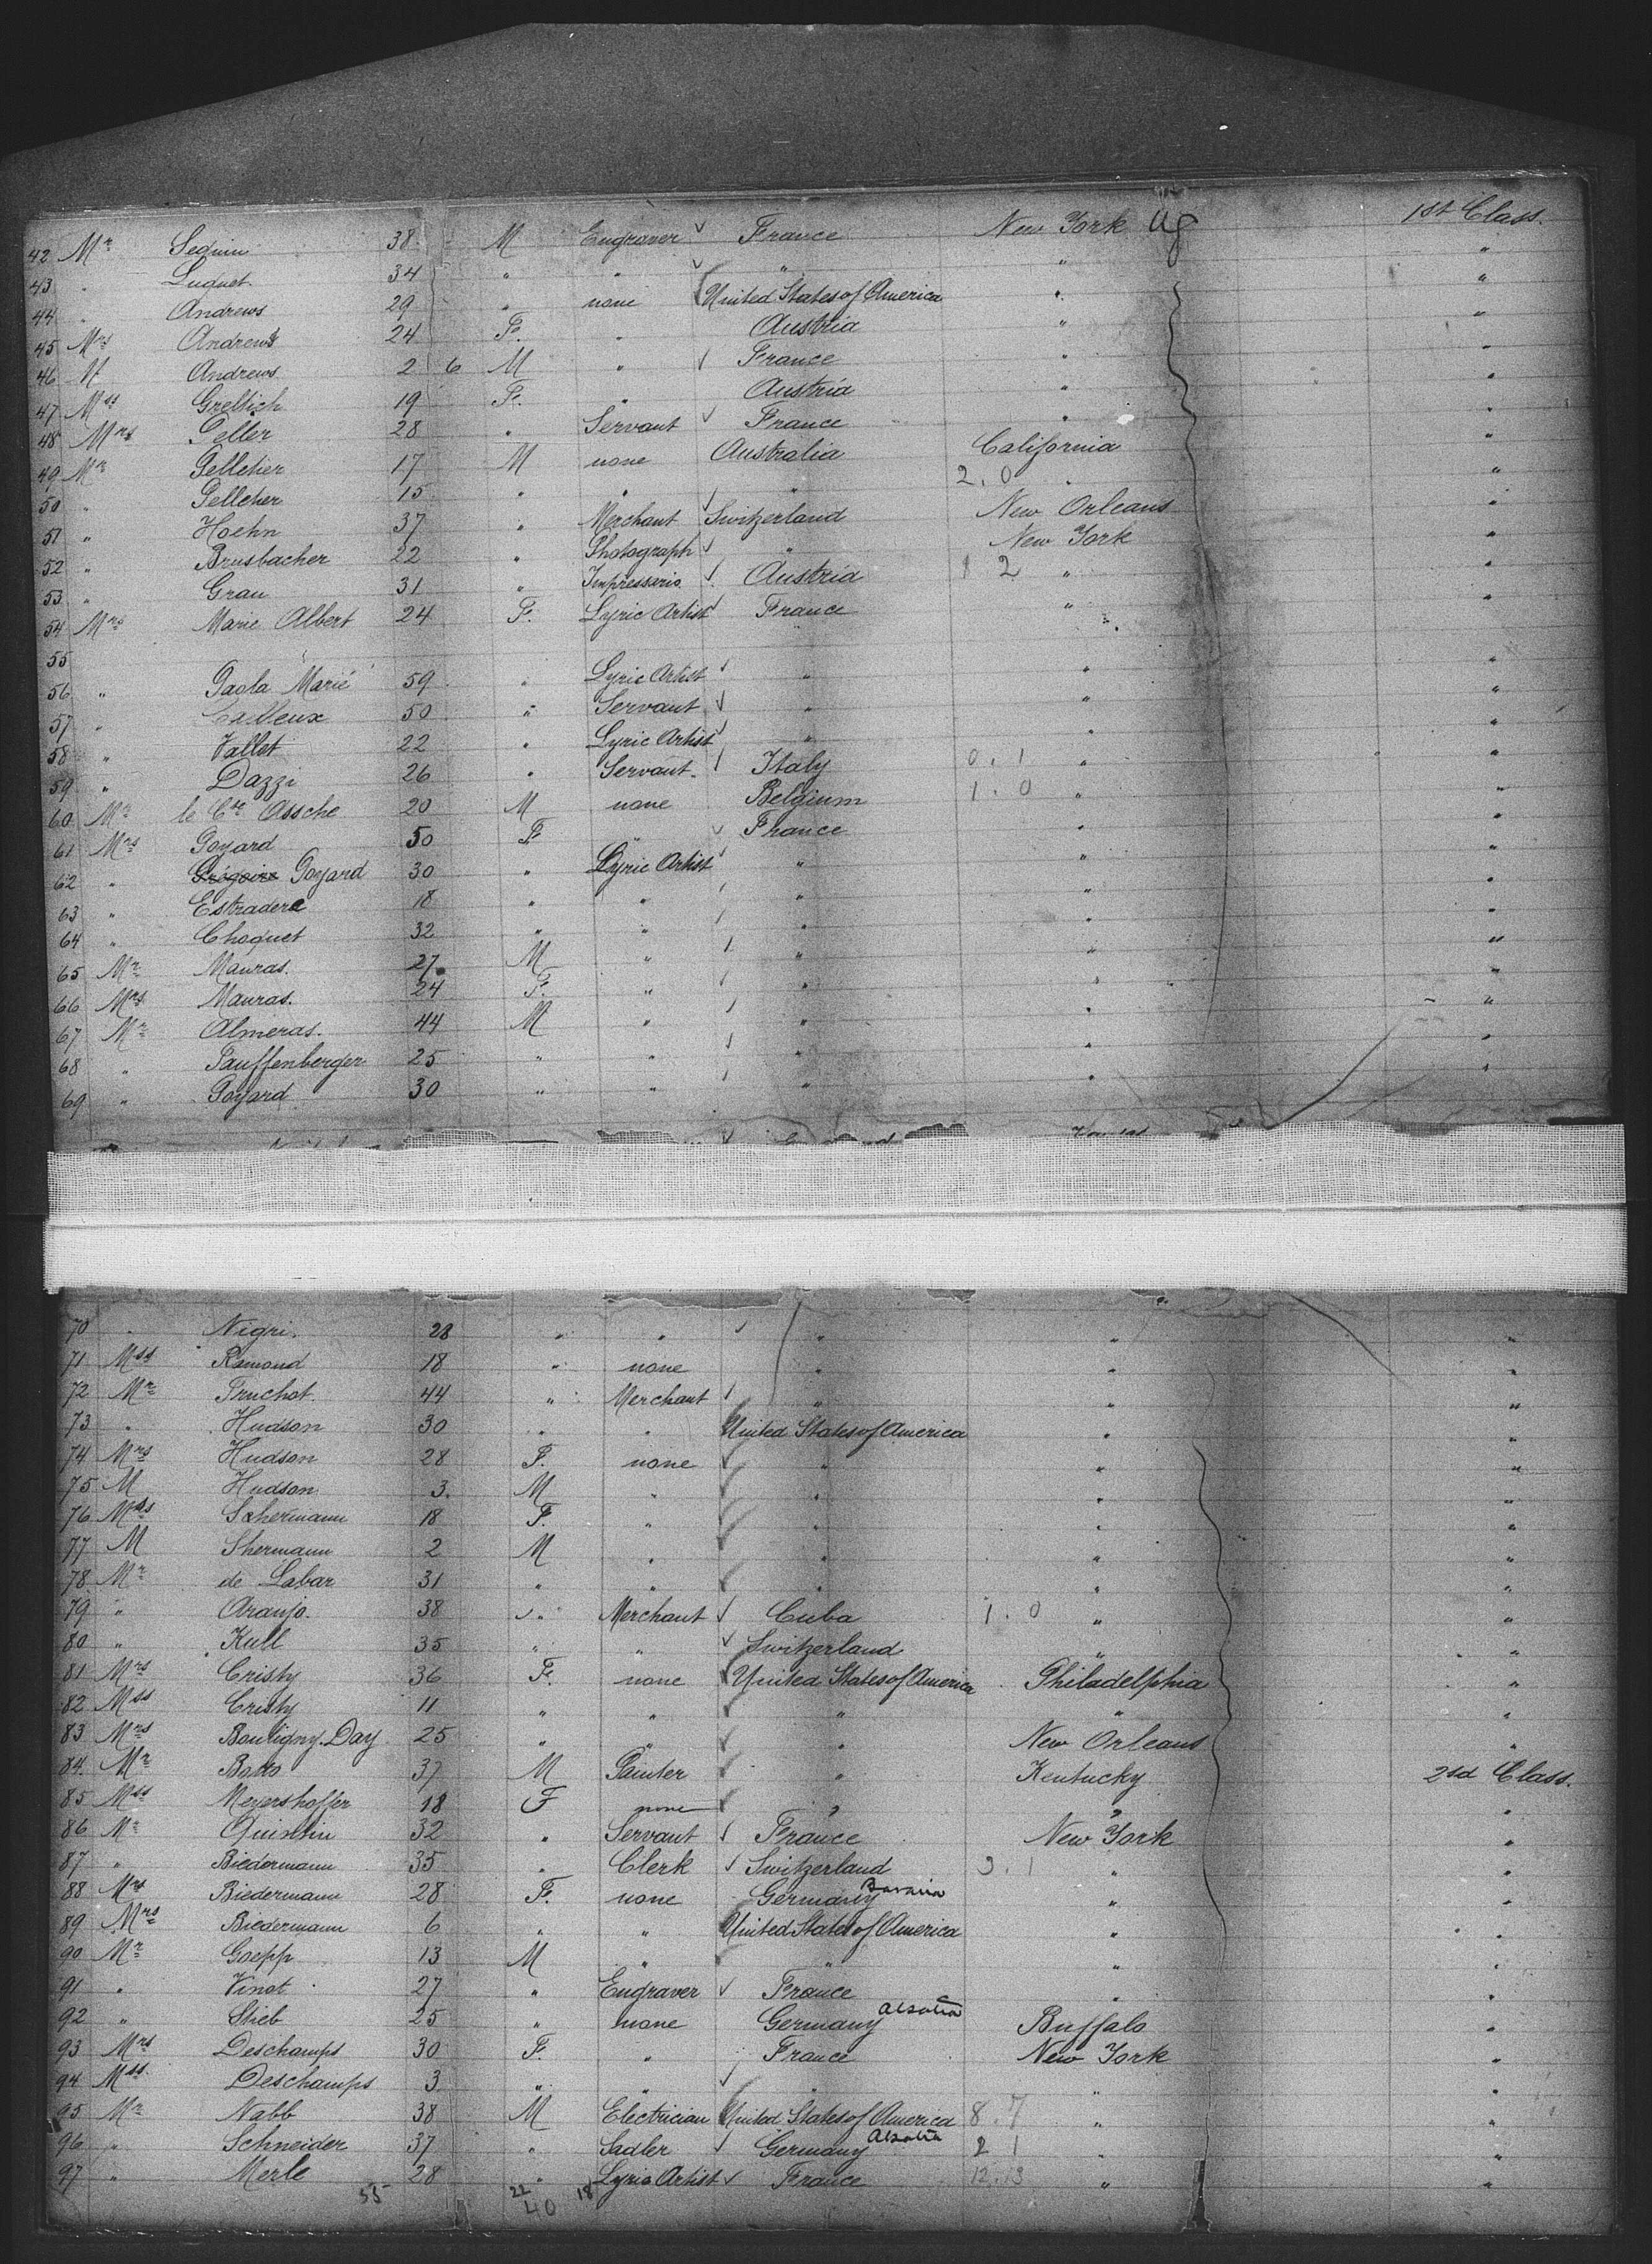 42 Mr Seguin 38 M Engraver France New York 1st Class
43 " Luquet 34 " " " " "
44 " Andrews 29 " none United States of America " "
45 Mrs Andrews 24 F. " Austria " "
46 M Andrews 2 6 M " France " "
47 Mss Grellich 19 F. " Austria " "
48 Mrs Peller 28 " Servant France " "
49 Mr Pelletier 17 M none Australia California "
50 " Pelletier 15 " " " 2.0 " "
51 " Hoehn 37 " Merchant Switzerland New Orleans "
52 " Brusbacher 22 " Photograph " New York "
53 " Grau 31 " Impresserio Austria 1 2 " "
54 Mrs Marie Albert 24 F. Lyric Artist France " "
55
56 " Paola Marié 59 " Lyric Artist " " "
57 " Cailleux 50 " Servant " " "
58 " Vallet 22 " Lyric Artist " " "
59 " Dazzi 26 " Servant Italy 0.1 " "
60 Mr le Cte Assche 20 M none Belgium 1.0 " "
61 Mrs Poyard 50 F. " France " "
62 " Grégoire Poyard 30 " Lyric Artist " " "
63 " Estradere 18 " " " " "
64 " Choquet 32 " " " " "
65 Mr Mauras. 27 M " " " "
66 Mrs Mauras. 24 F. " " " "
67 Mr Almeras. 44 M " " " "
68 " Pauffenberger 25 " " " " "
69 " Poyard 30 " " " " "
70 " Nigri. 28 " " " " "
71 Mss Ramond 18 " none " " "
72 Mr Pruchot 44 " Merchant " " "
73 " Hudson 30 " " United States of America " "
74 Mrs Hudson 28 F. none " " "
75 M Hudson 3. M " " " "
76 Mss Schermann 18 F. " " " "
77 M Shermann 2 M " " " "
78 Mr de Labar 31 " " " " "
79 " Araujo. 38 " Merchant Cuba 1.0 " "
80 " Kull 35 " " Switzerland " "
81 Mrs Cristy 36 F. none United States of America Philadelphia "
82 Mss Cristy 11 " " " " "
83 Mrs Bouligny-Day 25 " " " New Orleans "
84 Mr 37 M Painter " Kentucky 2sd Class.
85 Mss Meyershoffer 18 F none " " "
86 Mr Quintin 32 " Servant France New York "
87 " Biedermann 35 " Clerk Switzerland " "
88 Mrs Biedermann 28 F. none Germany Bavaria " "
89 Mrs Biedermann 6 " " United States of America " "
90 Mr Goepp 13 M " " " "
91 " Vinot 27 " Engraver France " "
92 " Stieb 25 " none Germany Alsatia Buffalo "
93 Mrs Deschamps 30 F. " France New York "
94 Mss Deschamps 3 " " " " "
95 Mr Nabb 38 M Electrician United States of America 8.7 " "
96 " Schneider 37 " Sadler Germany Alsatia 2 1 " "
97 " Merle 28 " Lyric Artist France 12.13 " "
55 22 18
40